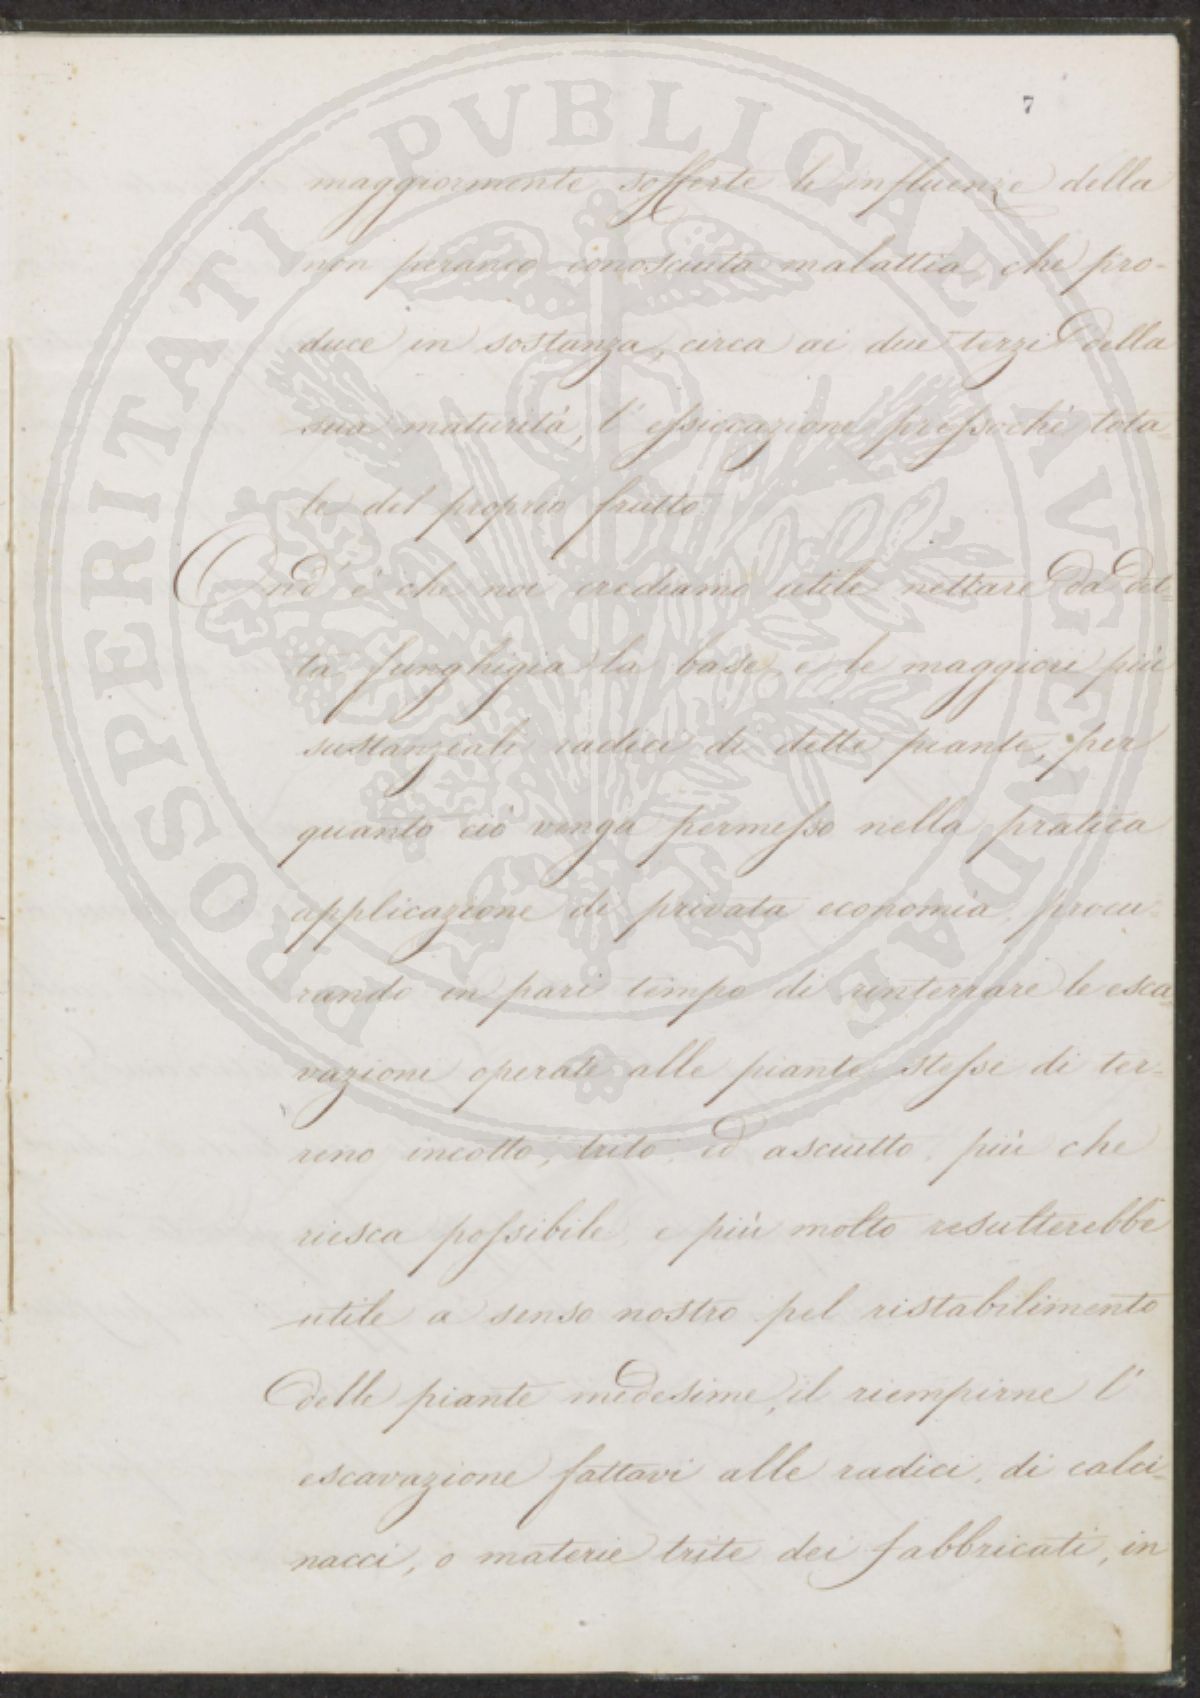 7
maggiormente sofferte le influenze della
non peranco conosciuta malattia, che pro-
duce in sostanza, circa ai due terzi della
sua maturità, l'essiccazione pressochè tota-
le del proprio frutto.
Ond'è che noi crediamo utile nettare da det-
ta funghigia la base, e le maggiori più
sustanziali radici di dette piante, per
quanto ciò venga permesso nella pratica
applicazione di privata economia, procu-
rando in pari tempo di rinterrare le esca-
vazioni operate alle piante stesse di ter-
reno incotto, trito, ed asciutto, più che
riesca possibile, e più molto resulterebbe
utile a senso nostro pel ristabilimento
delle piante medesime, il riempirne l'
escavazione fattavi alle radici, di calci-
nacci, o materie trite dei fabbricati, in
PROSPERITATI PVBLICAE AVGENDAE